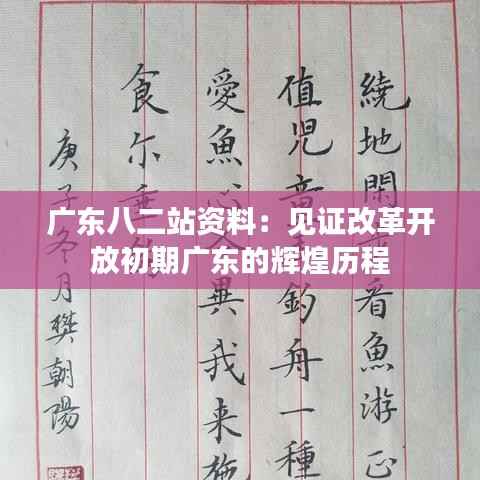 广东八二站资料：见证改革开
放初期广东的辉煌历程
繞地閒看魚游正
值兒童釣舟一種
愛魚心異我來施
食尔垂
庚子冬月樊朝陽